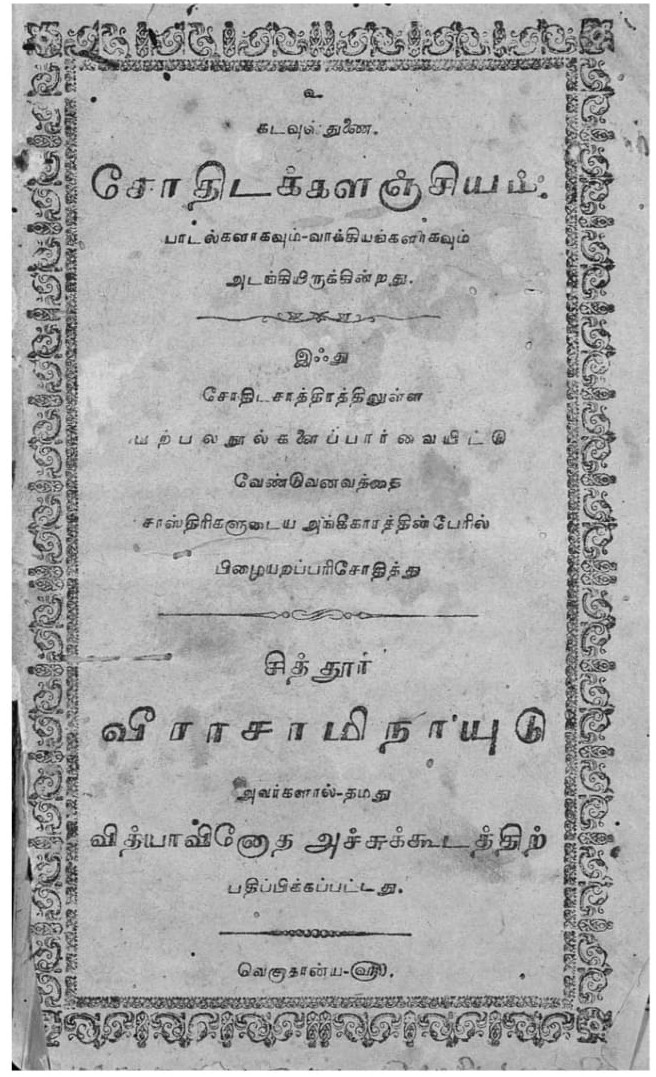 உ
கடவுள் துணை.
சோதிடக்களஞ்சியம்.
பாடல்களாகவும்-வாக்கியங்களாகவும்
அடங்கியிருக்கின்றது.
இஃது
சோதிடசாத்திரத்திலுள்ள
பற்பலநூல்களைப்பார்வையிட்டு
வேண்டுவனவத்தை
சாஸ்திரிகளுடைய அங்கீகாரத்தின்பேரில்
பிழையறப்பரிசோதித்து
சித்தூர்
வீராசாமிநாயுடு
அவர்களால்-தமது
வித்யாவினோத அச்சுக்கூடத்திற்
பதிப்பிக்கப்பட்டது.
வெகுதான்ய-௵.